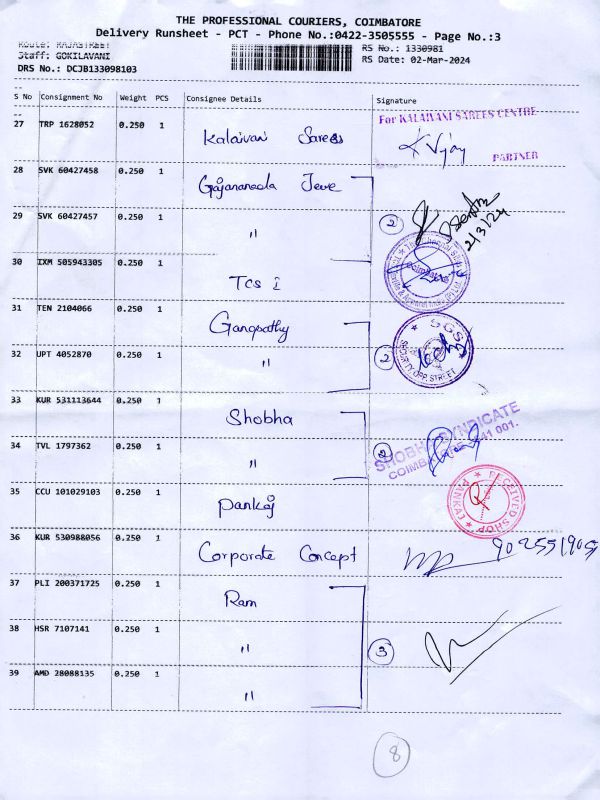 THE PROFESSIONAL COURIERS, COIMBATORE
Delivery Runsheet - PCT - Phone No.:0422-3505555 - Page No.:3
Route: RAJASTREET
RS No.: 1330981
Staff: GOKILAVANI
RS Date: 02-Mar-2024
DRS No.: DCJB133098103
S No Consignment No Weight PCS Consignee Details Signature
27 TRP 1628052 0.250 1 Kalaivani Sarees
For KALAIVANI SAREES CENTRE
K Vijay
PARTNER
28 SVK 60427458 0.250 1 Gajananda Jewe
29 SVK 60427457 0.250 1 "
2
2/3/24
30 IXM 505943305 0.250 1 TCS i
31 TEN 2104066 0.250 1 Ganapathy
SGS
32 UPT 4052870 0.250 1 "
2
33 KUR 531113644 0.250 1 Shobha
SHOBHA SYNDICATE
34 TVL 1797362 0.250 1 "
2
35 CCU 101029103 0.250 1 Pankaj
RECEIVED SHOP
PANKAJ
36 KUR 530988056 0.250 1 Corporate Concept
37 PLI 200371725 0.250 1 Ram
38 HSR 7107141 0.250 1 "
3
39 AMD 28088135 0.250 1 "
8